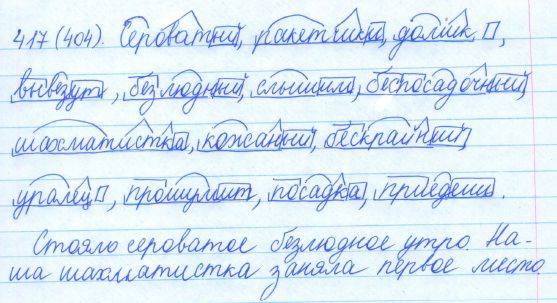 417 (404). Сероватый, ракетчики, домик,
вывезут, безлюдный, слышило, беспосадочный,
шахматистка, кожаный, бескрайний,
уралец, прошумит, посадка, приедешь.
Стояло сероватое безлюдное утро. На-
ша шахматистка заняла первое место.